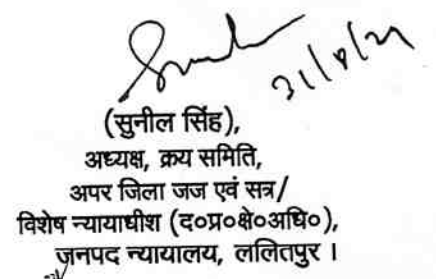 (सुनील सिंह),
अध्यक्ष, क्रय समिति,
अपर जिला जज एवं सत्र/
विशेष न्यायाधीश (द०प्र०क्षे०अधि०),
जनपद न्यायालय, ललितपुर ।